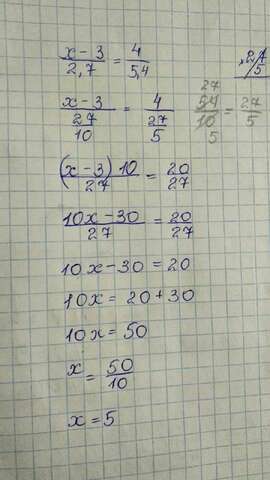 (x - 3)/2,7 = 4/5,4
(x - 3)/(27/10) = 4/(27/5)
54/10 = 27/5
27
5
((x - 3) 10)/27 = 20/27
(10x - 30)/27 = 20/27
10x - 30 = 20
10x = 20 + 30
10x = 50
x = 50/10
x = 5